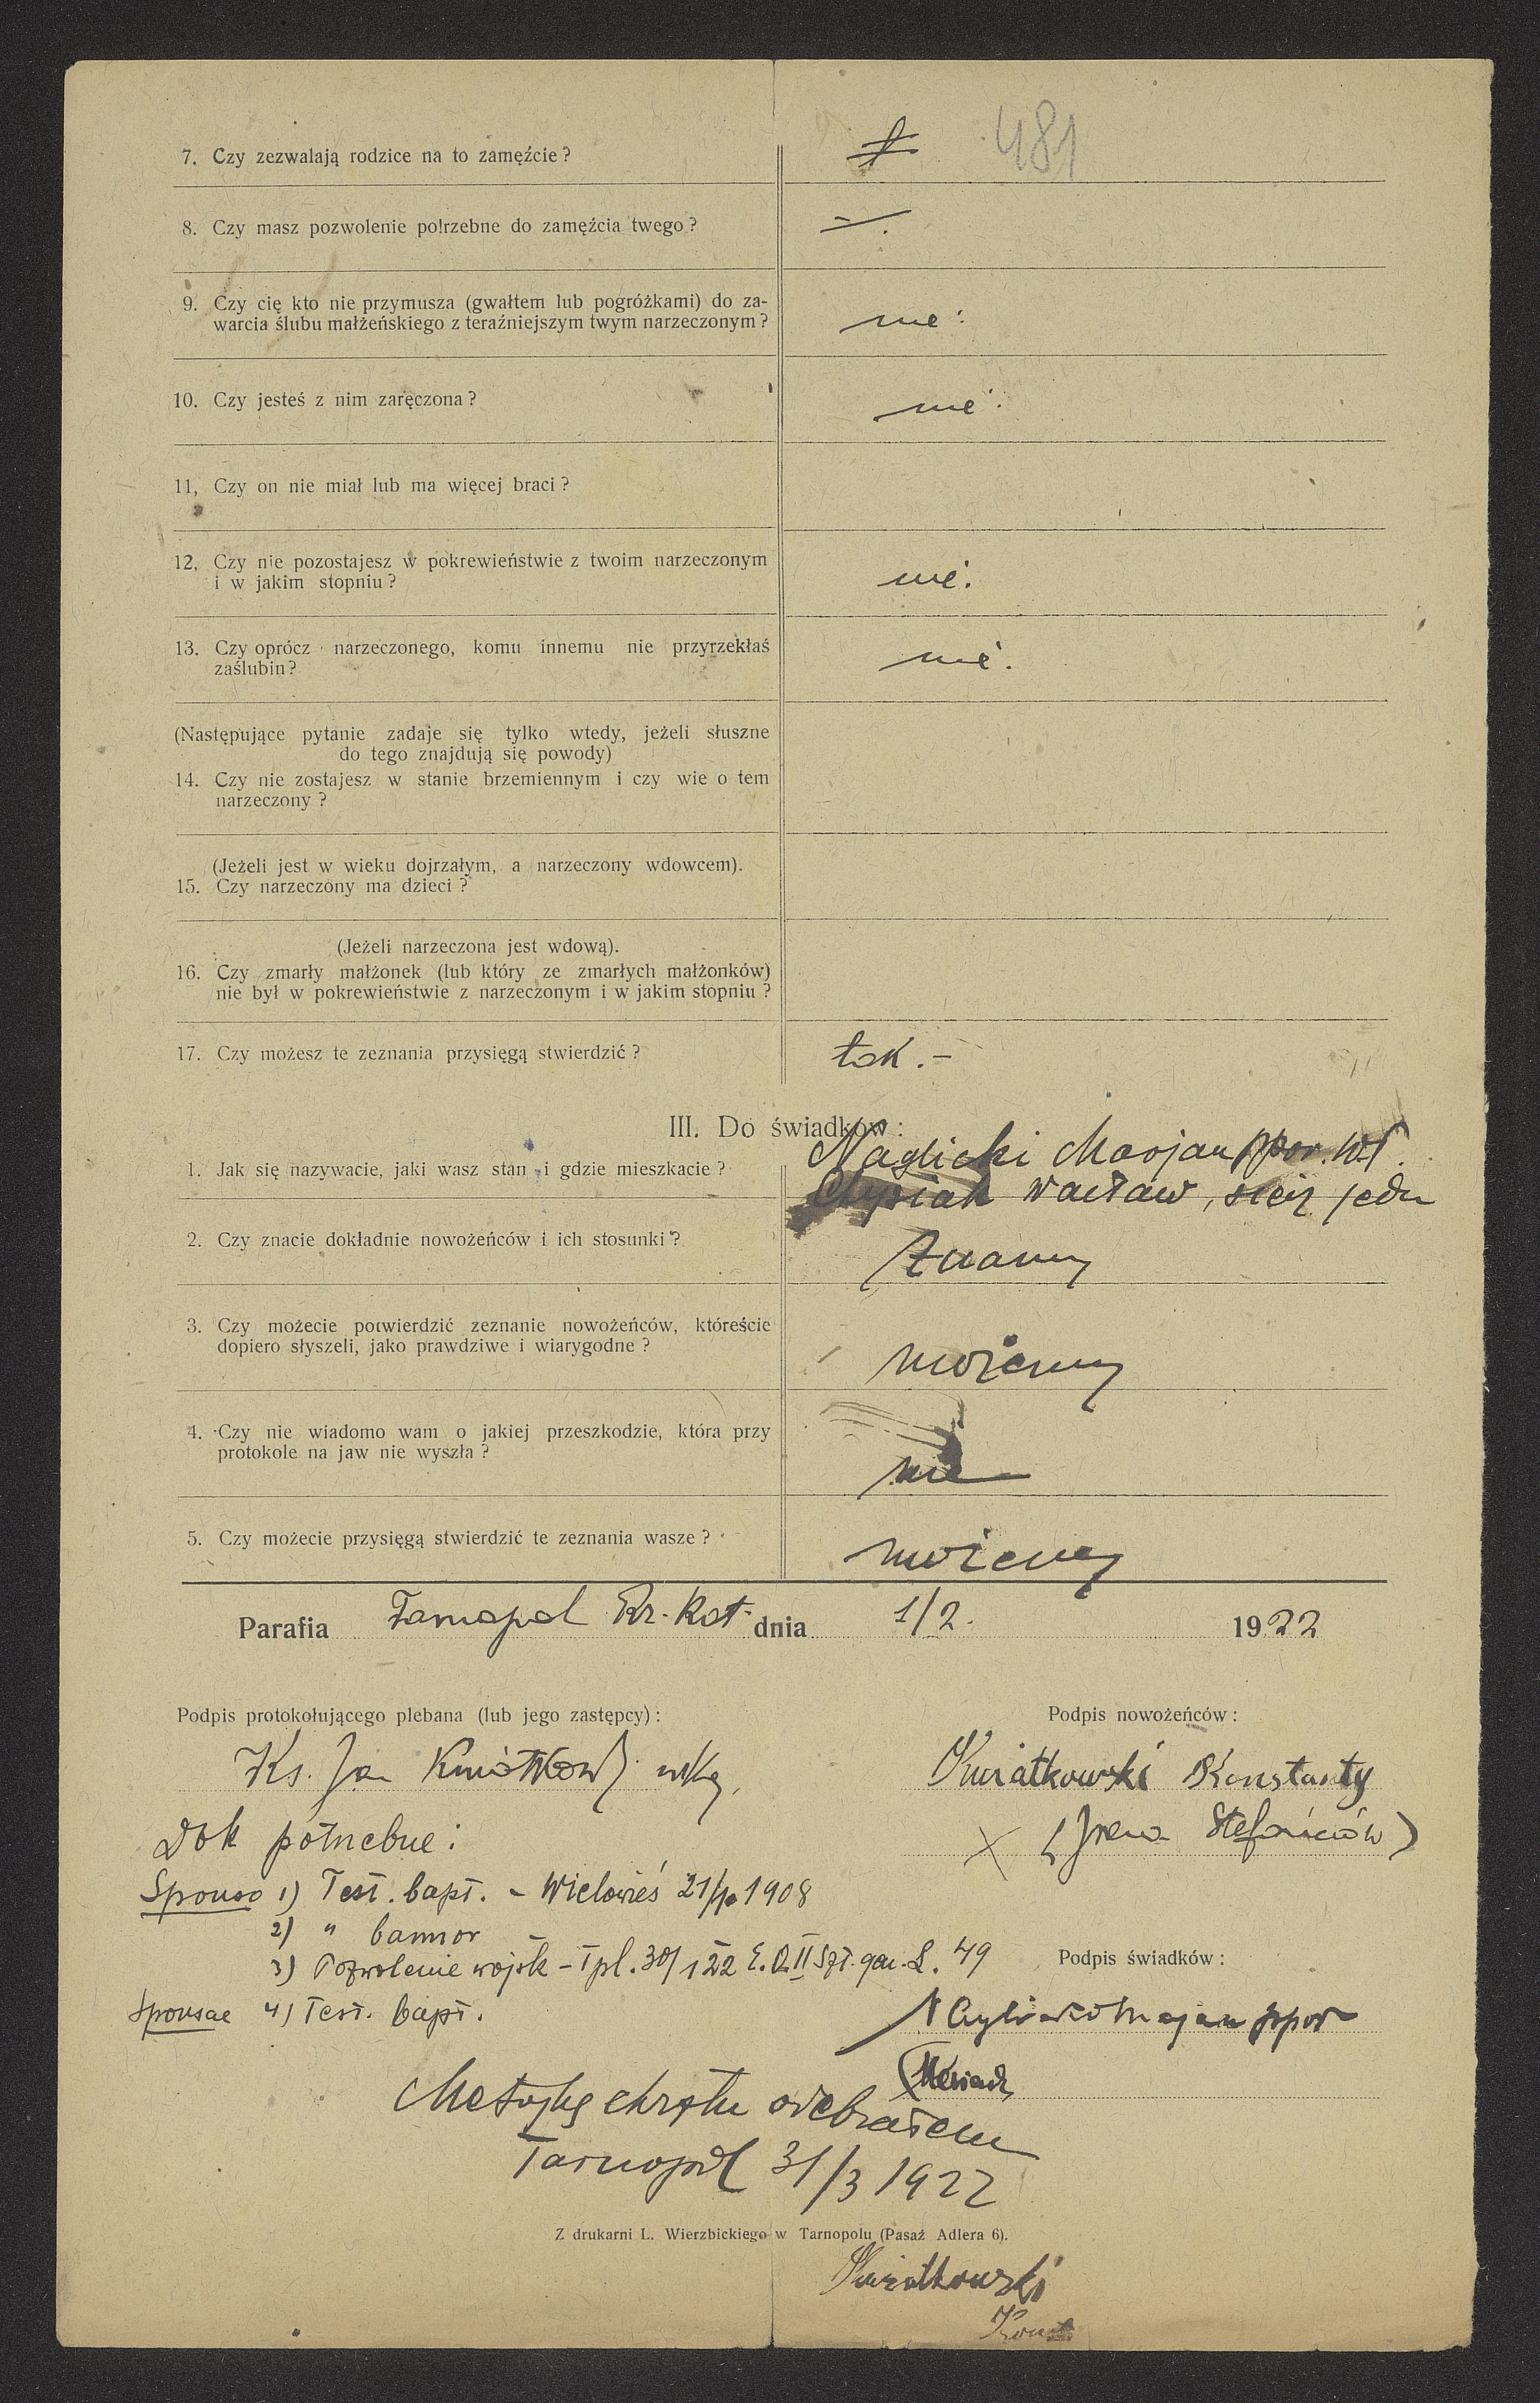 481
7. Czy zezwalają rodzice na to zamęźcie?
8. Czy masz pozwolenie potrzebne do zamęźcia twego?
9. Czy cię kto nie przymusza (gwałtem lub pogróżkami) do za-
warcia ślubu małżeńskiego z teraźniejszym twym narzeczonym?
nie.
10. Czy jesteś z nim zaręczona?
nie.
11, Czy on nie miał lub ma więcej braci?
12, Czy nie pozostajesz w pokrewieństwie z twoim narzeczonym
i w jakim stopniu?
nie.
13. Czy oprócz narzeczonego, komu innemu nie przyrzekłaś
zaślubin?
nie.
(Następujące pytanie zadaje się tylko wtedy, jeżeli słuszne
do tego znajdują się powody)
14. Czy nie zostajesz w stanie brzemiennym i czy wie o tem
narzeczony?
(Jeżeli jest w wieku dojrzałym, a narzeczony wdowcem).
15. Czy narzeczony ma dzieci?
(Jeżeli narzeczona jest wdową).
16. Czy zmarły małżonek (lub który ze zmarłych małżonków)
nie był w pokrewieństwie z narzeczonym i w jakim stopniu?
17. Czy możesz te zeznania przysięgą stwierdzić?
tak.-
III. Do świadków:
1. Jak się nazywacie, jaki wasz stan i gdzie mieszkacie?
Naglicki Marjan ppor. W.P.
Wacław, sierż
2. Czy znacie dokładnie nowożeńców i ich stosunki?
Znamy
3. Czy możecie potwierdzić zeznanie nowożeńców, któreście
dopiero słyszeli, jako prawdziwe i wiarygodne?
możemy
4. Czy nie wiadomo wam o jakiej przeszkodzie, która przy
protokole na jaw nie wyszła?
nie
5. Czy możecie przysięgą stwierdzić te zeznania wasze?
możemy
Parafia Tarnopol Rz. Kat. dnia 1/2. 1922
Podpis protokołującego plebana (lub jego zastępcy):
Podpis nowożeńców:
Ks. Jan Kwiatkowski
Kwiatkowski Konstanty
X (Irena Stefańców)
Dok potrzebne:
Sponso 1) Test. bapt. - Wielowieś 21/10 1908
2) " bannor
3) Pozwolenie wojsk - Tpl. 30/1 22 L. 49
Podpis świadków:
Sponsae 4) Test. bapt.
Marjan ppor
Metrykę chrztu odebrałem
Tarnopol 31/3 1922
Z drukarni L. Wierzbickiego w Tarnopolu (Pasaż Adlera 6).
Kwiatkowski
Konst